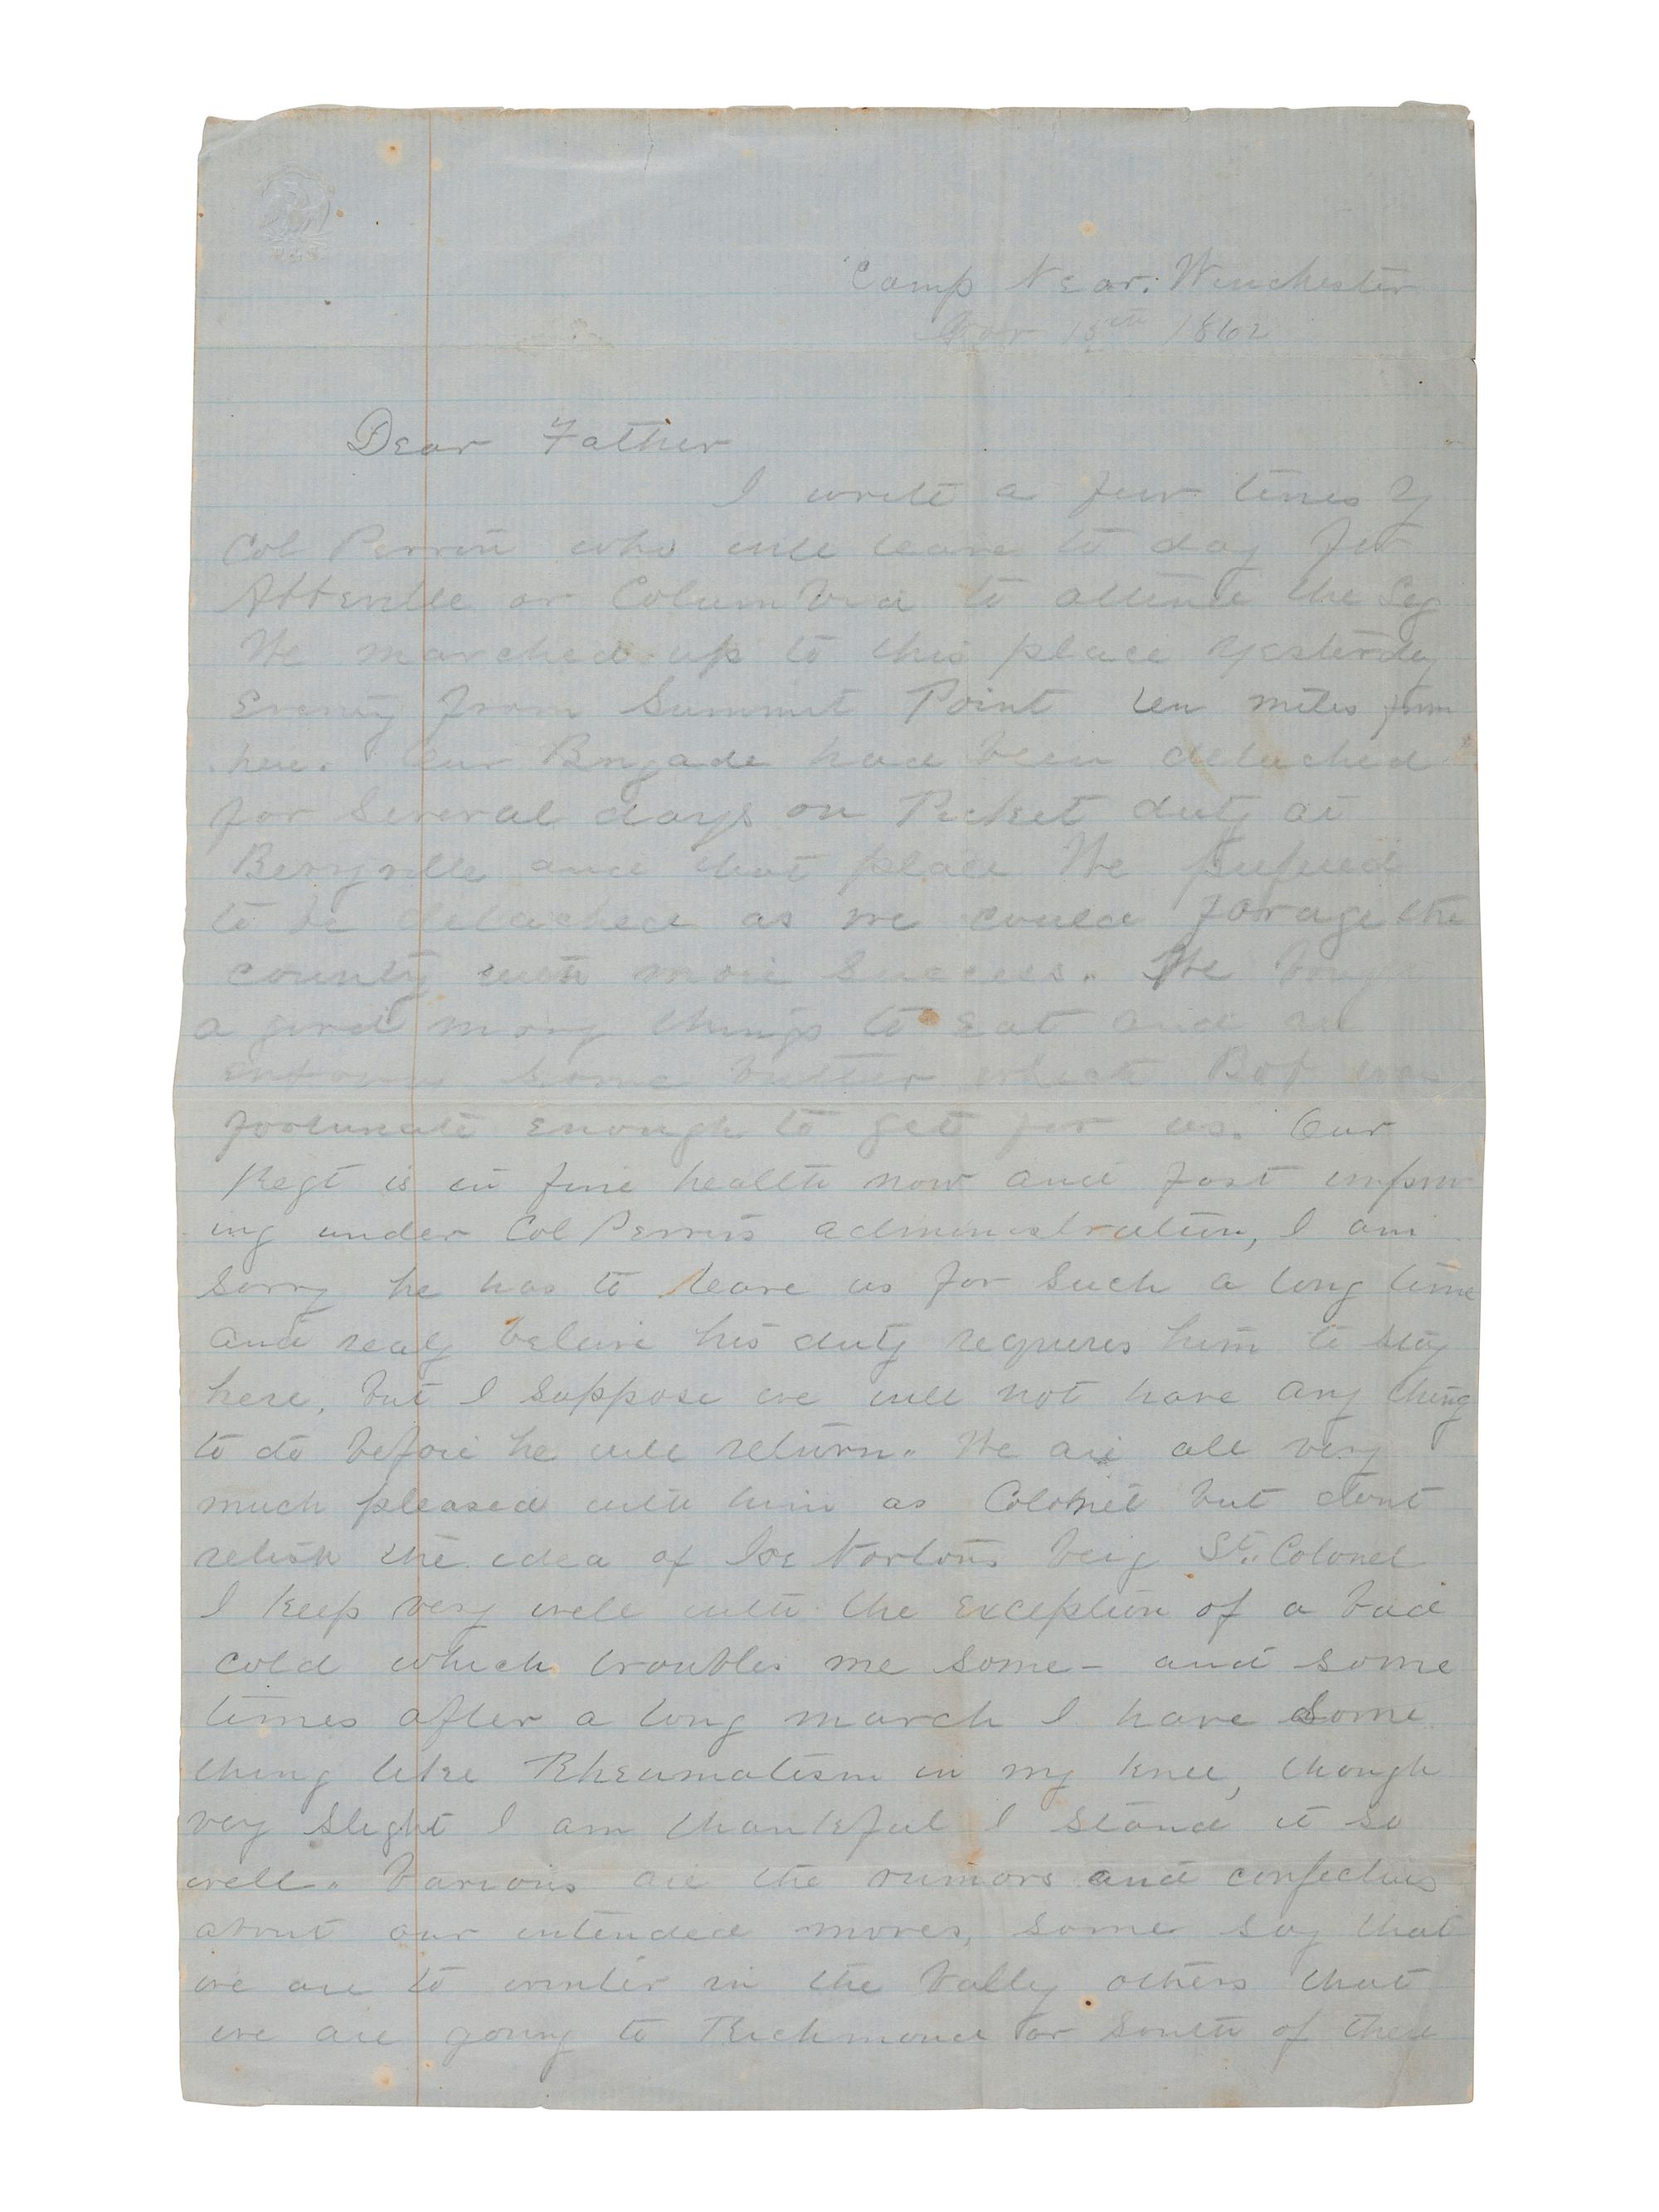 Camp Near. Winchester
Nov 15th 1862
Dear Father
I write a few lines by
Col Perrin who will leave to day for
Abbeville or Columbia to attend the Leg
We marched up to this place yesterday
Evening from Summit Point ten miles from
here. Our Brigade had been detached
for Several days on Picket duty at
Berryville and that place We prefered
to be detached as we could forage the
county with more Success. We
a good many things to Eat and
some butter which Bob was
fortunate Enough to get for us. Our
Regt is in fine health now and fast improv
ing under Col Perrins administration, I am
Sorry he has to leave us for Such a long time
and realy beleive his duty requires him to stay
here, but I Suppose we will not have any thing
to do before he will return. We are all very
much pleased with him as Colonel but dont
relish the idea of Joe Nortons beig Lt. Colonel
I Keep very well with the Exception of a bad
cold which troubles me some - and some
times after a long march I have Some
thing like Rheumatism in my knee, though
very Slight I am thankful I Stand it so
well. Various are the rumors and confectures
about our intended moves, some say that
we are to winter in the Vally others that
we are going to Richmond or South of there